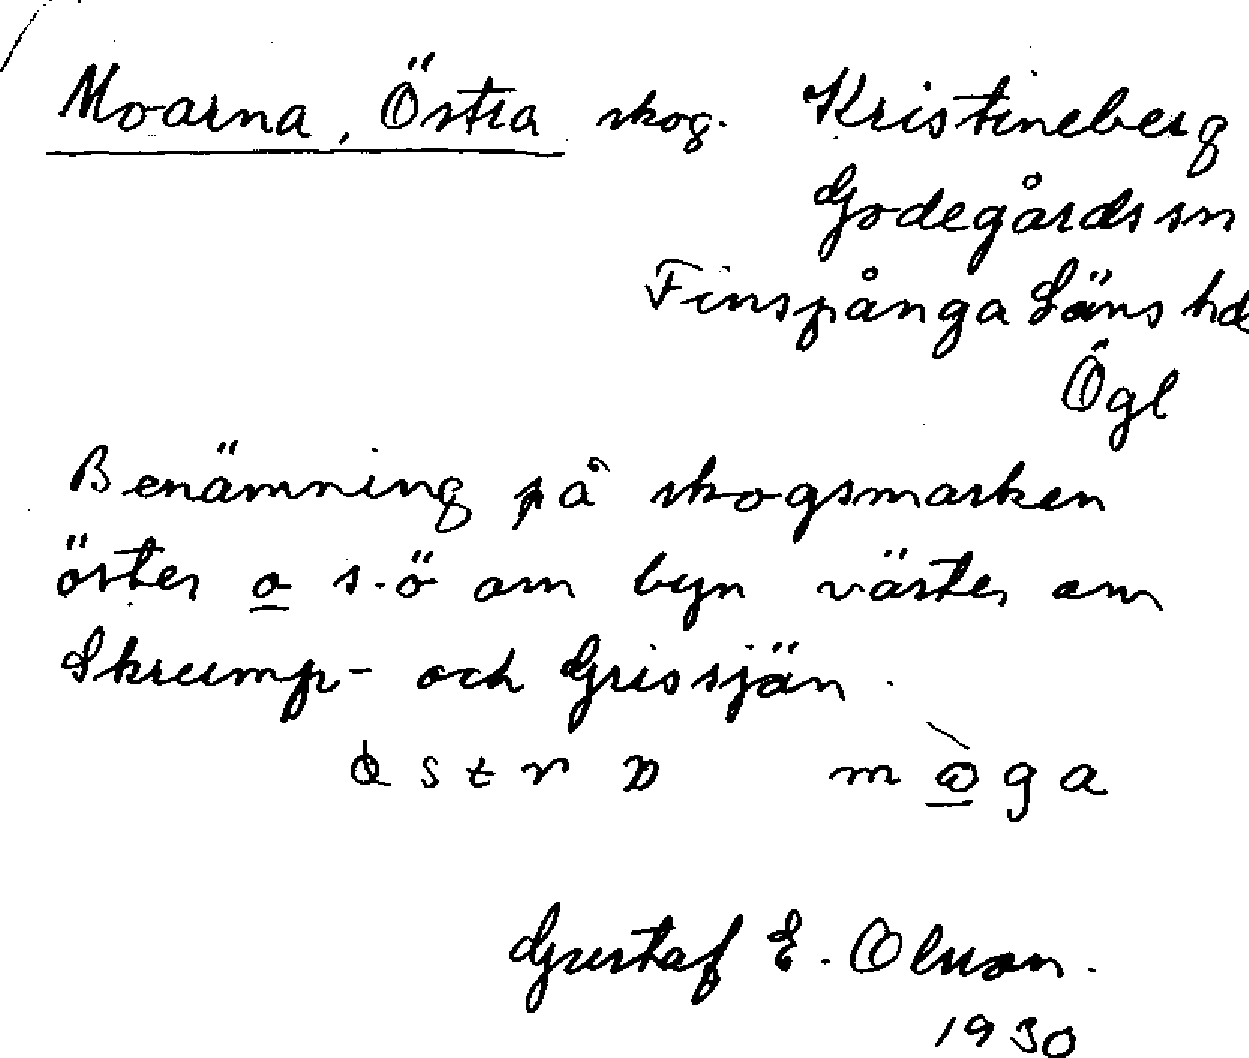 Moarna, Östra skog. Kristineberg
Godegårds sn
Finspånga Läns hd
Ögl
Benämning på skogsmarken
öster o s.ö om byn väster om
Skrump- och Grissjön.
Gustaf E. Olsson.
1930